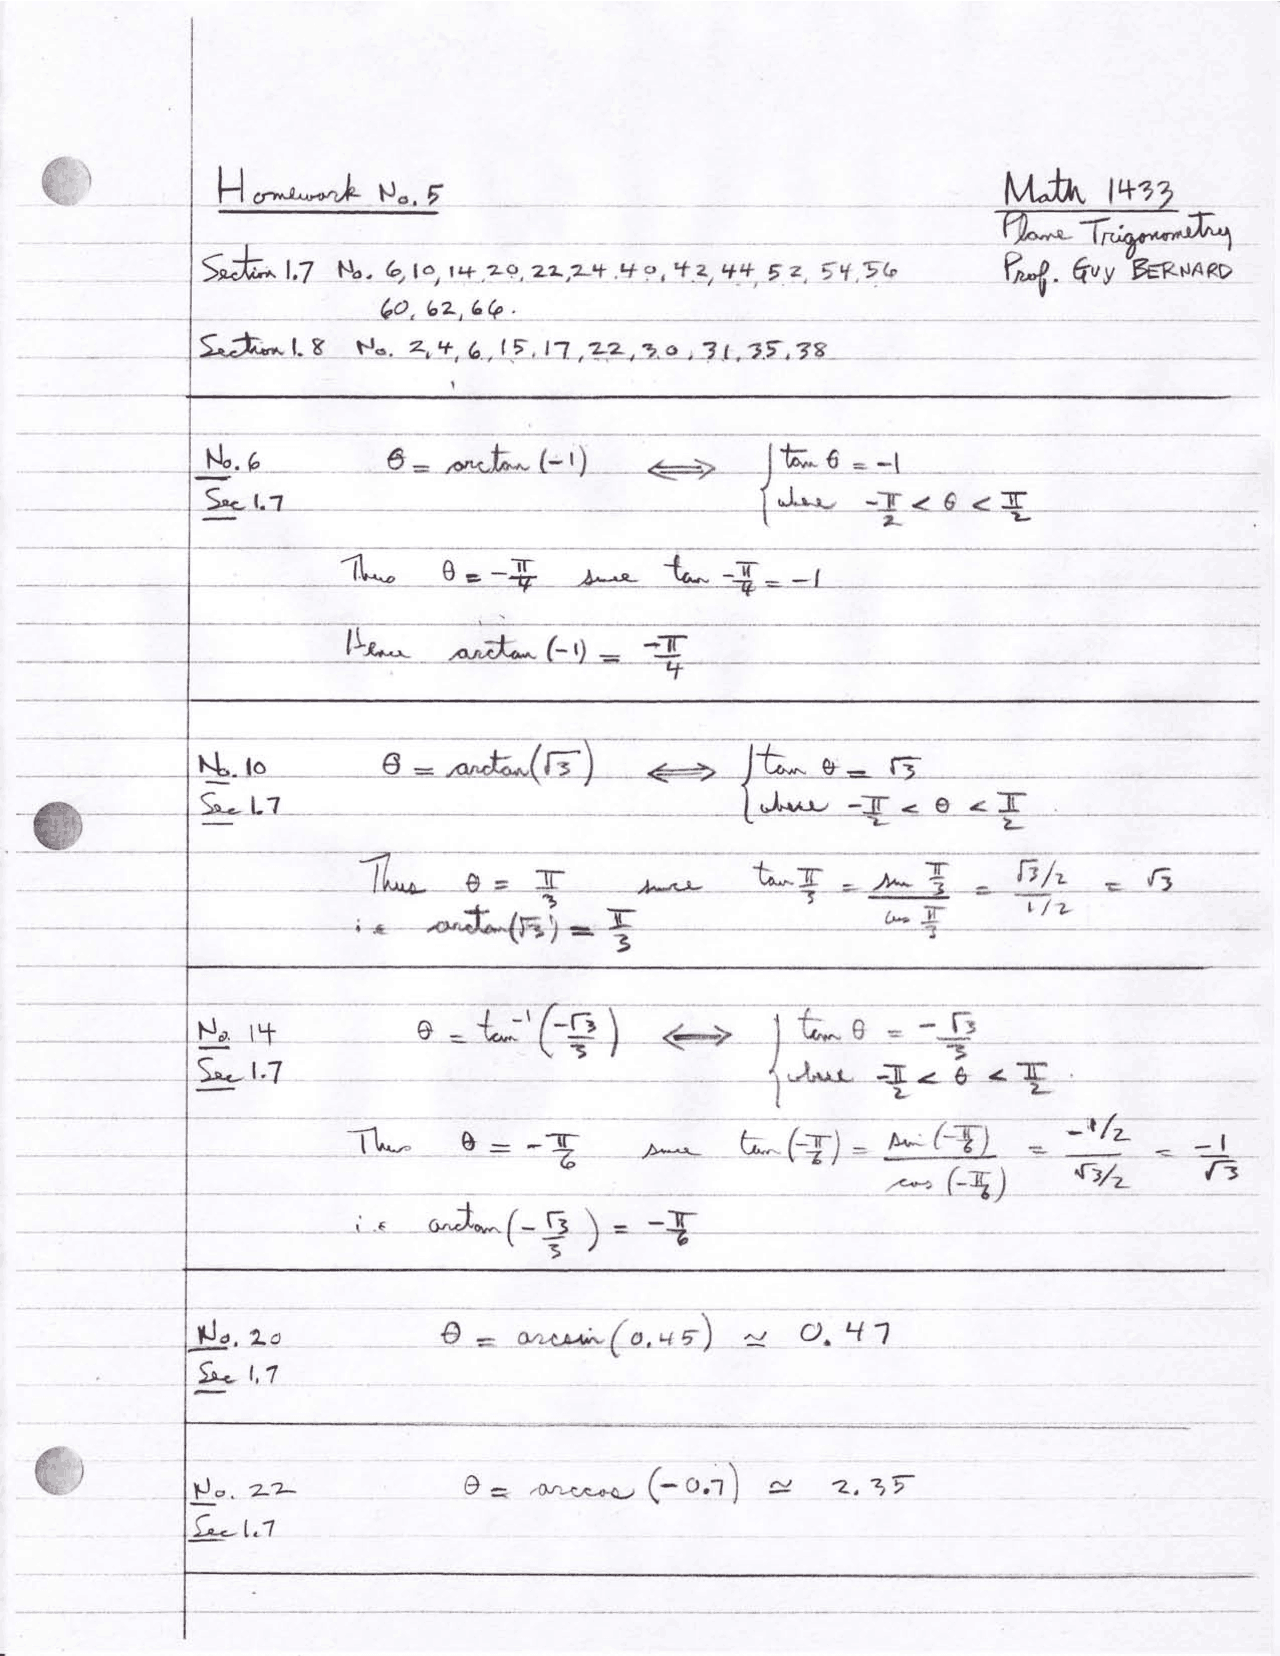 Homework No. 5
Math 1433
Plane Trigonometry
Prof. Guy BERNARD
Section 1.7 No. 6, 10, 14, 20, 22, 24, 40, 42, 44, 52, 54, 56
60, 62, 66.
Section 1.8 No. 2, 4, 6, 15, 17, 22, 30, 31, 35, 38
No. 6 θ = arctan (-1) ⟺ { tan θ = -1
Sec 1.7 where -π/2 < θ < π/2
Thus θ = -π/4 since tan -π/4 = -1
Hence arctan (-1) = -π/4
No. 10 θ = arctan(√3) ⟺ { tan θ = √3
Sec 1.7 where -π/2 < θ < π/2
Thus θ = π/3 since tan π/3 = sin π/3 / cos π/3 = √3/2 / 1/2 = √3
i.e arctan(√3) = π/3
No. 14 θ = tan⁻¹(-√3/3) ⟺ { tan θ = -√3/3
Sec 1.7 where -π/2 < θ < π/2.
Thus θ = -π/6 since tan(-π/6) = sin(-π/6) / cos(-π/6) = -1/2 / √3/2 = -1/√3
i.e arctan(-√3/3) = -π/6
No. 20 θ = arcsin(0.45) ≃ 0.47
Sec 1.7
No. 22 θ = arccos (-0.7) ≃ 2.35
Sec 1.7